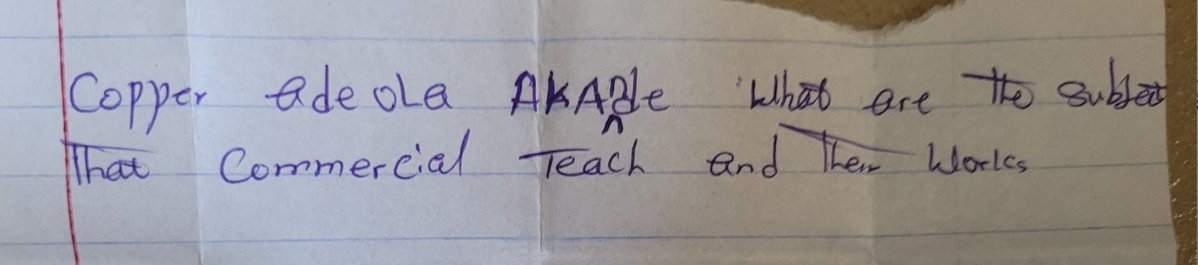 Copper adeola AKANde What are the Subject
That Commercial Teach and Their Works